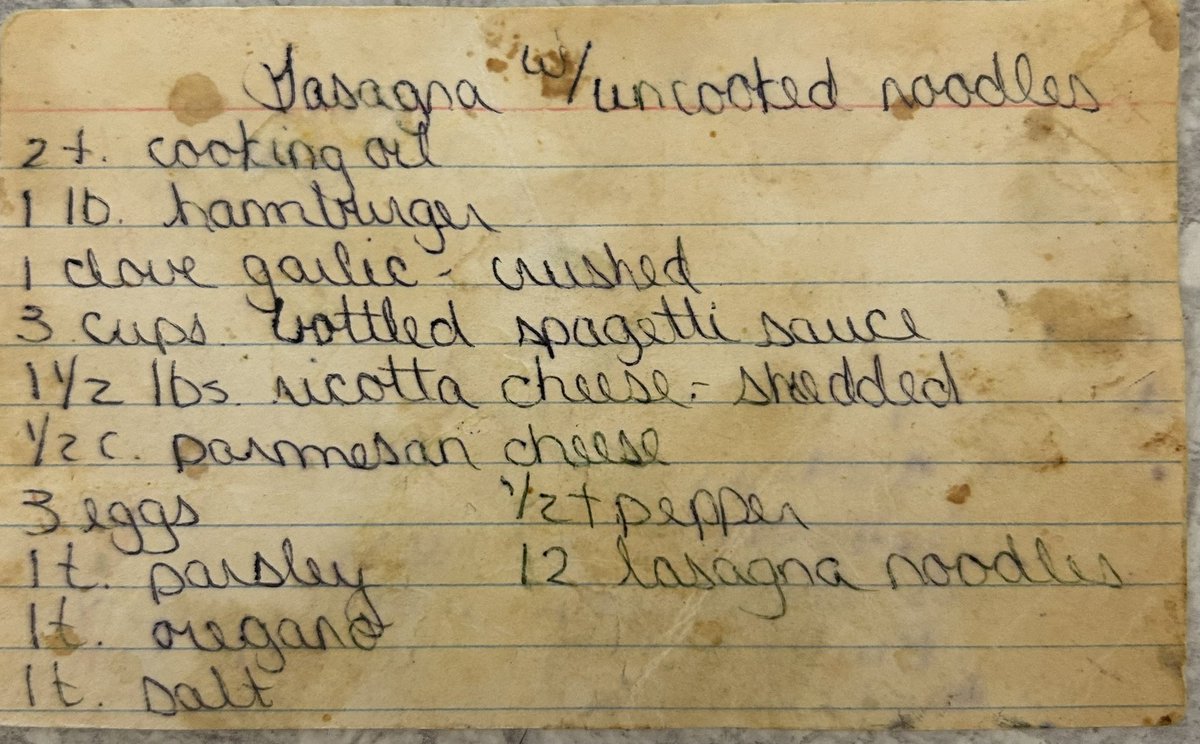 Lasagna w/uncooked noodles
2 t. cooking oil
1 lb. hamburger
1 clove garlic - crushed
3 cups. bottled spagetti sauce
1 1/2 lbs. ricotta cheese - shedded
1/2 c. parmesan cheese
3 eggs 1/2 t pepper
1 t. parsley 12 lasagna noodles
1t. oregano
1t. salt